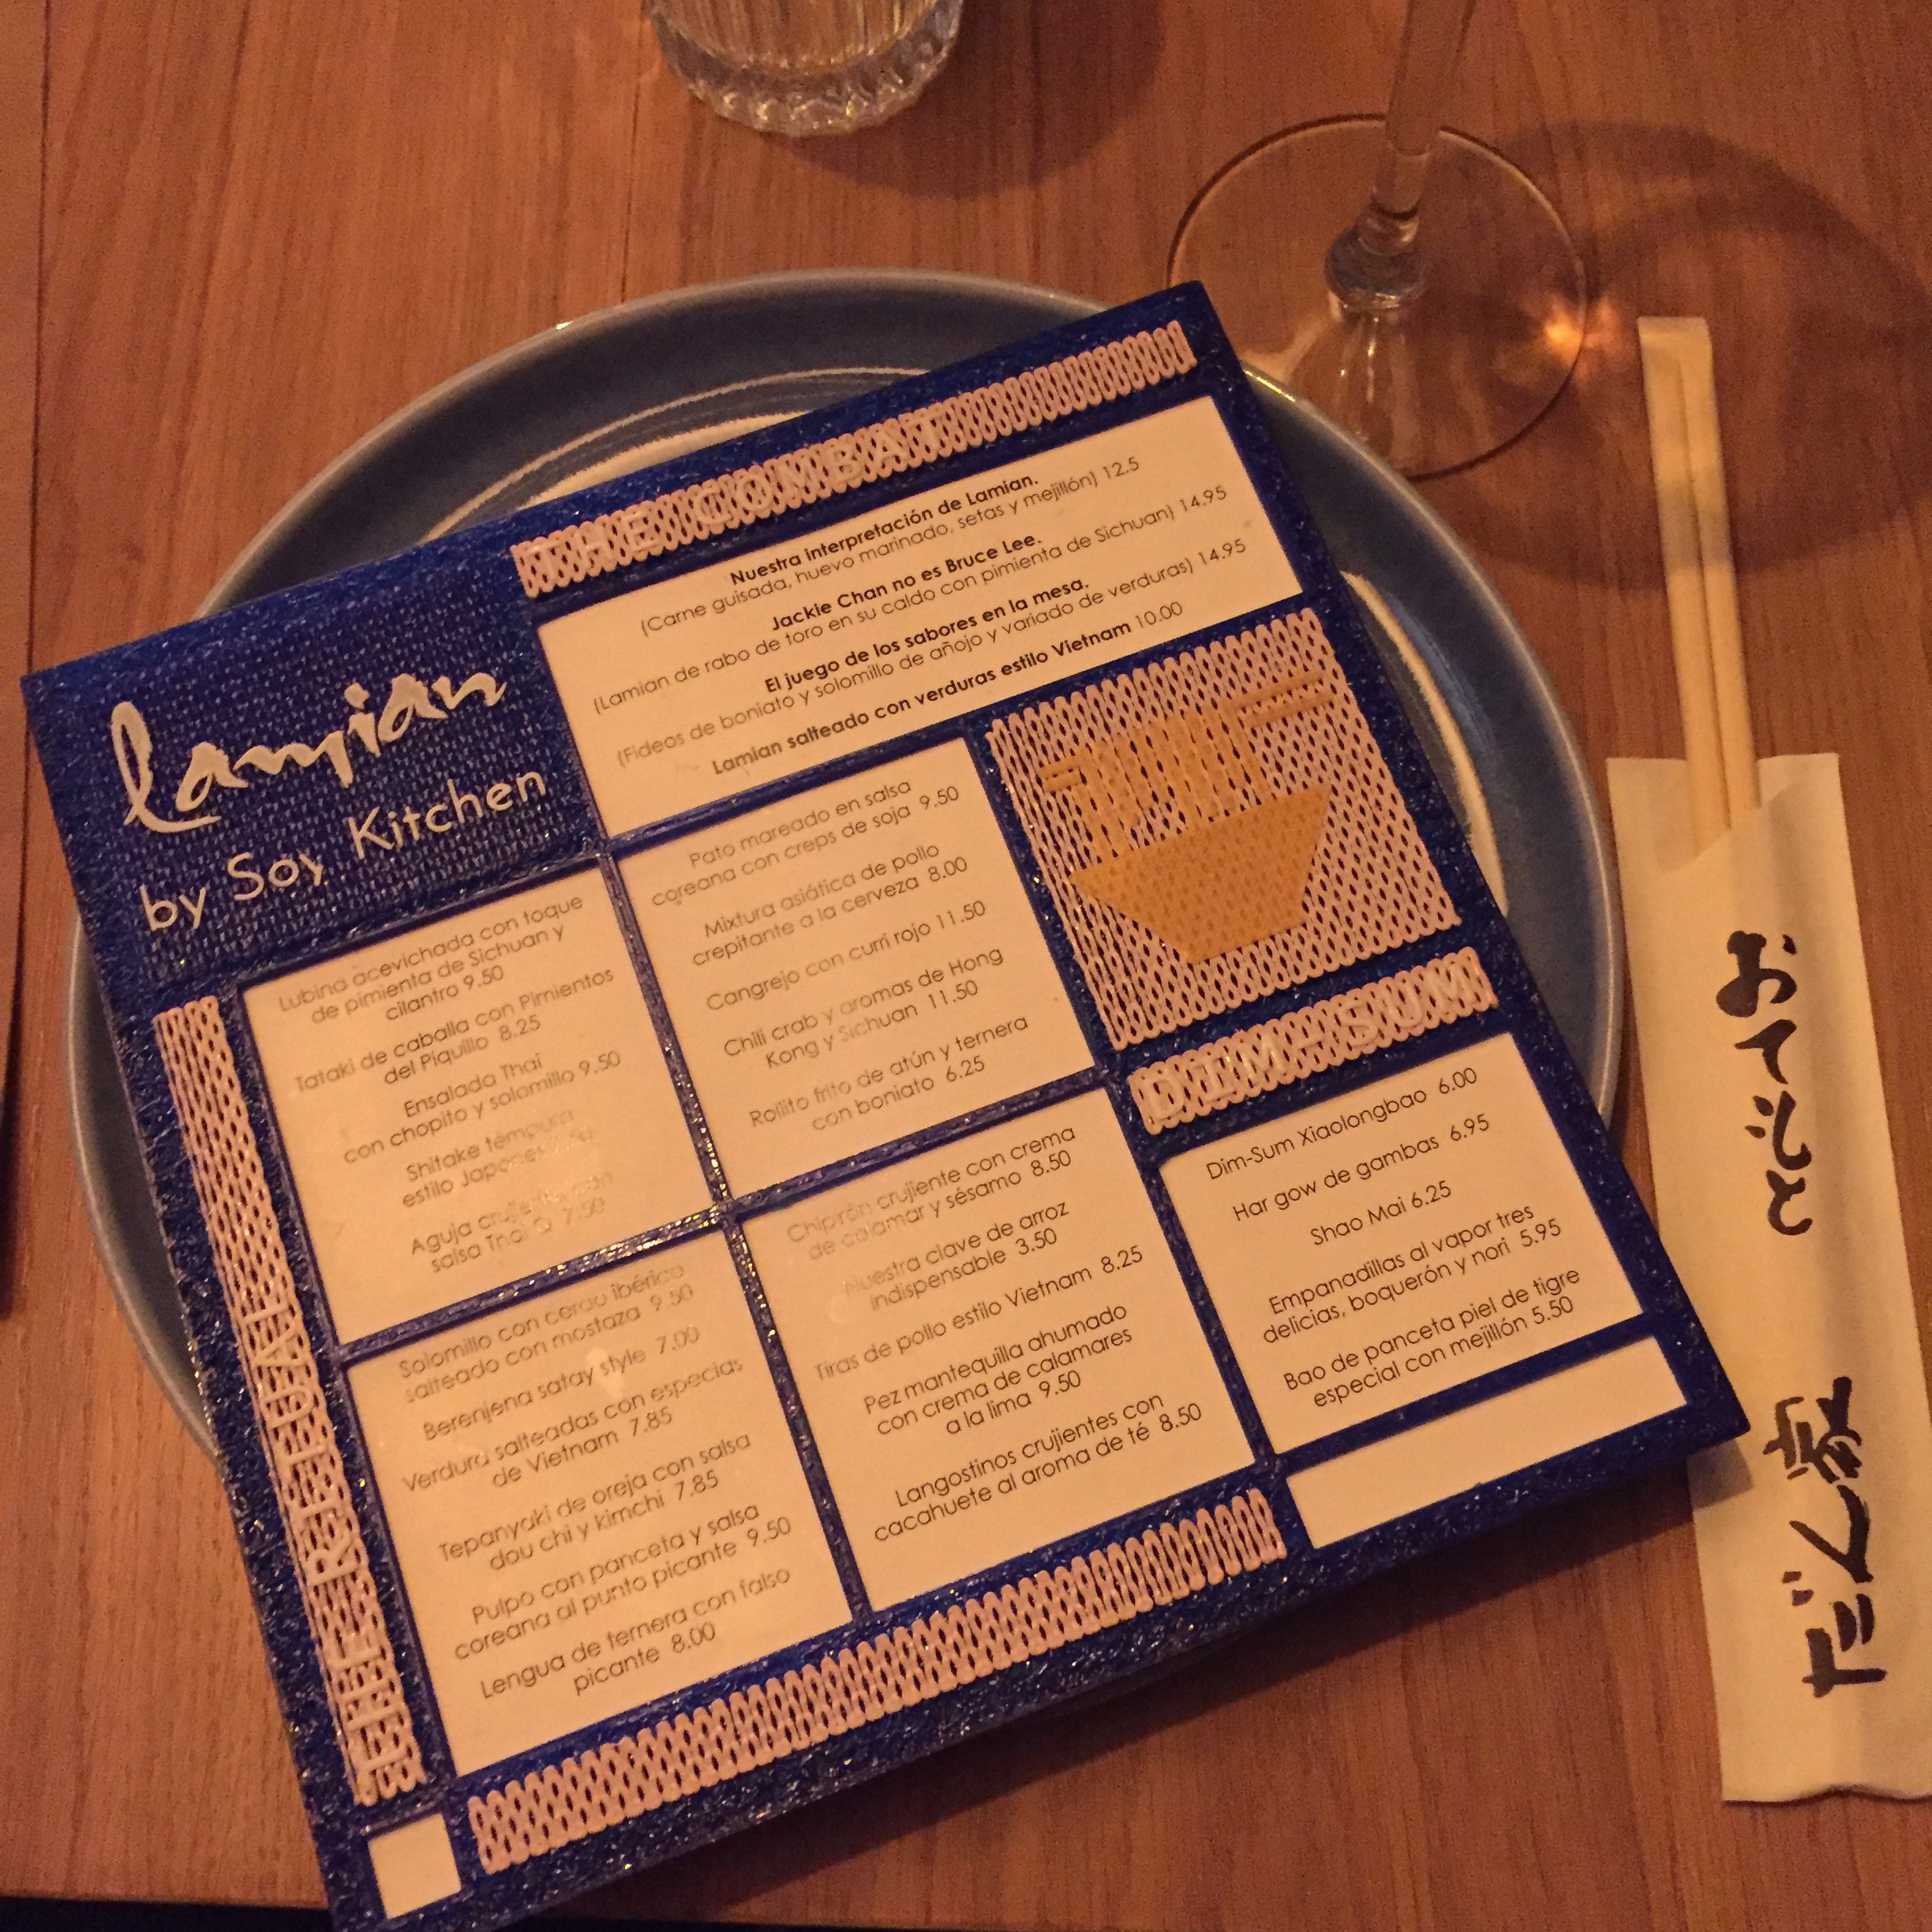 lamian
by Soy Kitchen
THE COMBAT
Nuestra interpretación de Lamian.
(Carne guisada, huevo marinado, setas y mejillón) 12.5
Jackie Chan no es Bruce Lee.
(Lamian de rabo de toro en su caldo con pimienta de Sichuan) 14.95
El juego de los sabores en la mesa.
(Fideos de boniato y solomillo de añojo y variado de verduras) 14.95
Lamian salteado con verduras estilo Vietnam 10.00
THE REFEUAL
Lubina acevichada con toque
de pimienta de Sichuan y
cilantro 9.50
Tataki de caballa con Pimientos
del Piquillo 8.25
Ensalada Thai
con chopito y solomillo 9.50
Shitake témpura
estilo Japones
Aguja crujiente con
salsa Thai 7.50
Pato mareado en salsa
coreana con creps de soja 9.50
Mixtura asiática de pollo
crepitante a la cerveza 8.00
Cangrejo con curri rojo 11.50
Chili crab y aromas de Hong
Kong y Sichuan 11.50
Rollito frito de atún y ternera
con boniato 6.25
Solomillo con cerdo ibérico
salteado con mostaza 9.50
Berenjena satay style 7.00
Verdura salteadas con especias
de Vietnam 7.85
Tepanyaki de oreja con salsa
dou chi y kimchi 7.85
Pulpo con panceta y salsa
coreana al punto picante 9.50
Lengua de ternera con falso
picante 8.00
Chipirón crujiente con crema
de calamar y sésamo 8.50
Nuestra clave de arroz
indispensable 3.50
Tiras de pollo estilo Vietnam 8.25
Pez mantequilla ahumado
con crema de calamares
a la lima 9.50
Langostinos crujientes con
cacahuete al aroma de té 8.50
DIM-SUM
Dim-Sum Xiaolongbao 6.00
Har gow de gambas 6.95
Shao Mai 6.25
Empanadillas al vapor tres
delicias, boquerón y nori 5.95
Bao de panceta piel de tigre
especial con mejillón 5.50
おてもと
だんらん